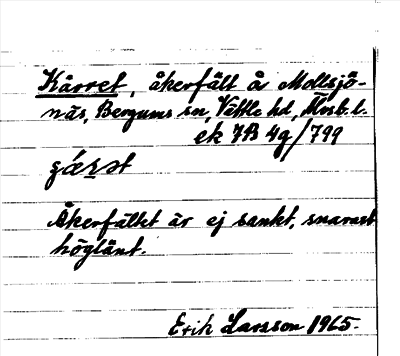 Kärret, åkerfält å Mollsjö-
näs, Bergums sn, Vättle hd, Älvsb. l.
ek 7B 4g/799
Åkerfältet är ej sankt, snarast
höglänt.
Erik Larsson 1965.